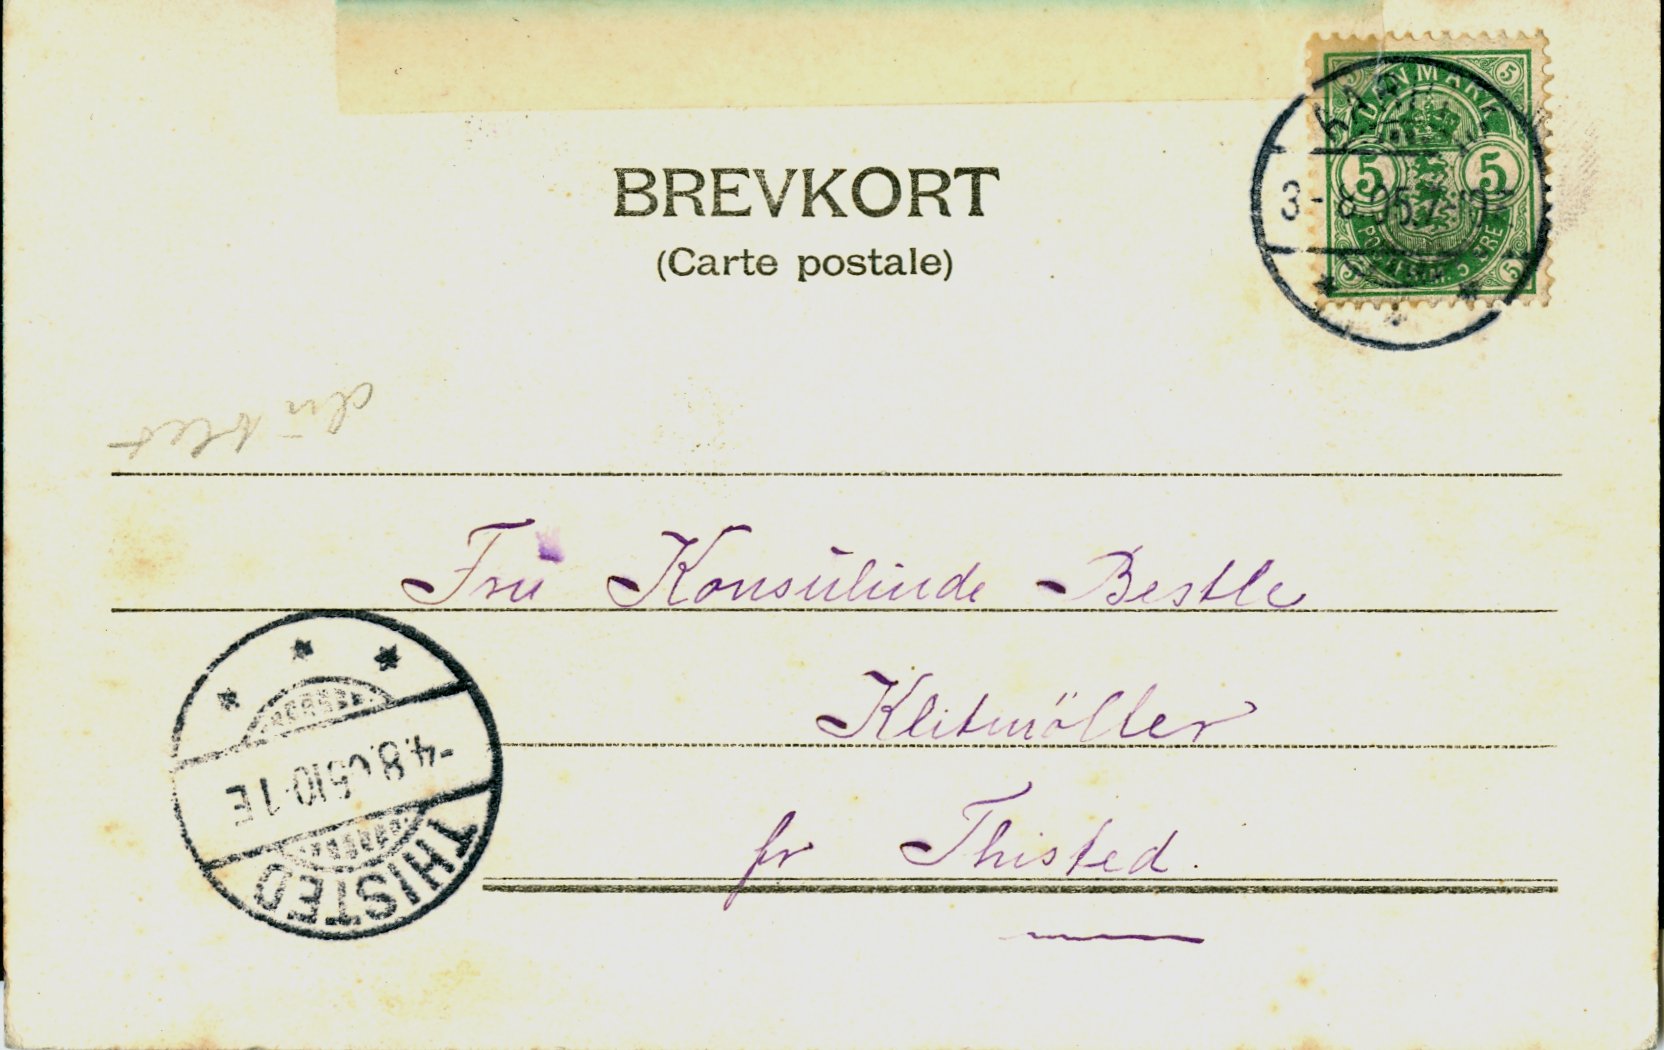 DANMARK
5 5
POSTFRIM. 5 ØRE
3-8.05.7
BREVKORT
(Carte postale)
Frŭ Konsŭlinde Bestle
Klitmöller
fr Thisted.
-4.8.05 10-1 E
THISTED